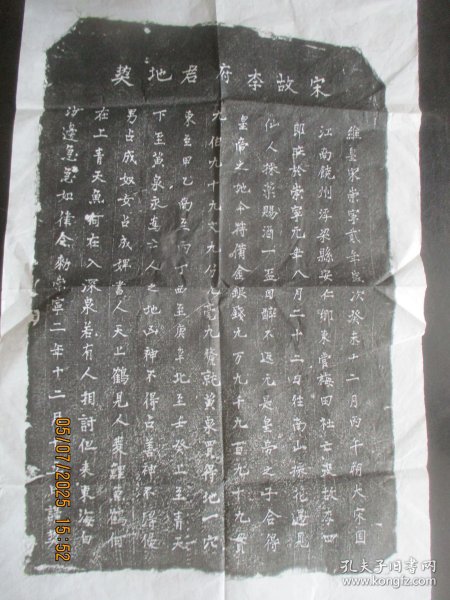 宋故李府君地契
維皇宋崇寧貳年歲次癸未十二月丙午朔大宋國
江南饒州浮梁縣安仁鄉東管梅田社亡歿故李四
郎歿於崇寧元年八月二十二日往南山採花遇見
仙人採藥賜酒一盃回醉不返元是皇帝之子合得
皇帝之地今將備金銀錢九万九千九百九十九貫
九佰九十九文九分九毫九 就 東 買得地一穴
東至甲乙南至丙丁西至庚辛北至壬癸上至青天
下至黃泉永為亡人之地凶神不得占善神不得
男占成奴女占成婢書人天上鶴見人 鯉魚鶴何
在上青天魚何在入深泉若有人相討但來東海白
沙邊急急如律令勅崇寧二年十二月十 日 契
05/07/2025 15:52
孔夫子旧书网
www.kongfz.com